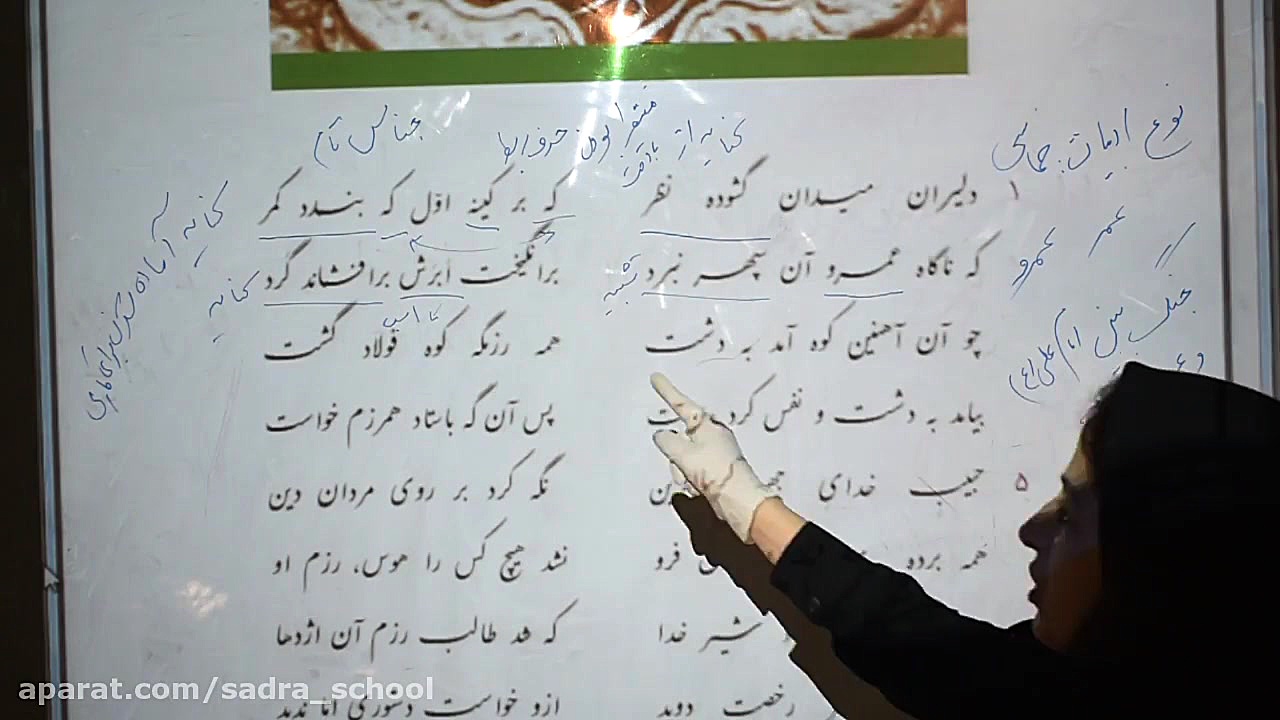 نوع ادبیات: حماسی
کنایه از
منتظر بودن
حرف ربط
جناس تام
۱ دلیران میدان گشوده نظر که بر کینه اوّل که بندد کمر
کنایه آماده شدن برای کاری
عمر عمرو
که ناگاه عمرو آن سپهر نبرد برانگیخت ابرش برافشاند گرد
تشبیه
کنایه
اسب
جنگ بین امام علی (ع)
و
چو آن آهنین کوه آمد به دشت همه رزمگه کوه فولاد گشت
بیامد به دشت و نفس کرد پس آن گه باستاد همرزم خواست
۵ حبیب خدای نگه کرد بر روی مردان دین
همه برده فرو نشد هیچ کس را هوس، رزم او
شیر خدا که شد طالب رزم آن اژدها
رخصت دوید ازو خواست دستوری امّا ندید
aparat.com/sadra_school